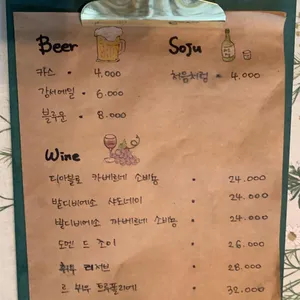 Beer
카스 • 4,000
강서메밀 • 6,000
블루문 • 8,000
Soju
처음처럼 • 4,000
Wine
디아블로 카베르네 소비뇽 • 24.000
발디비에소 샤도네이 • 24.000
발디비에소 까베르네 소비뇽 • 24.000
도멘 드 조이 • 26.000
리저브 • 28.000
르 • 32.000